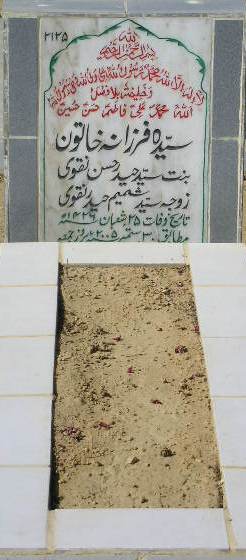 ۲۱۲۵
اللہ
بسم اللہ الرحمن الرحیم
لا الہ الا اللہ محمد رسول اللہ علی ولی اللہ وصی رسول اللہ
وخلیفتہ بلا فصل
اللہ محمد علی فاطمہ حسن حسین
سیدہ فرزانہ خاتون
بنت سید حیدر حسن نقوی
زوجہ سید شمیم حیدر نقوی
تاریخ وفات ۲۵ شعبان ۱۴۲۶ھ
مطابق ۳۰ ستمبر ۲۰۰۵ء بروز جمعہ